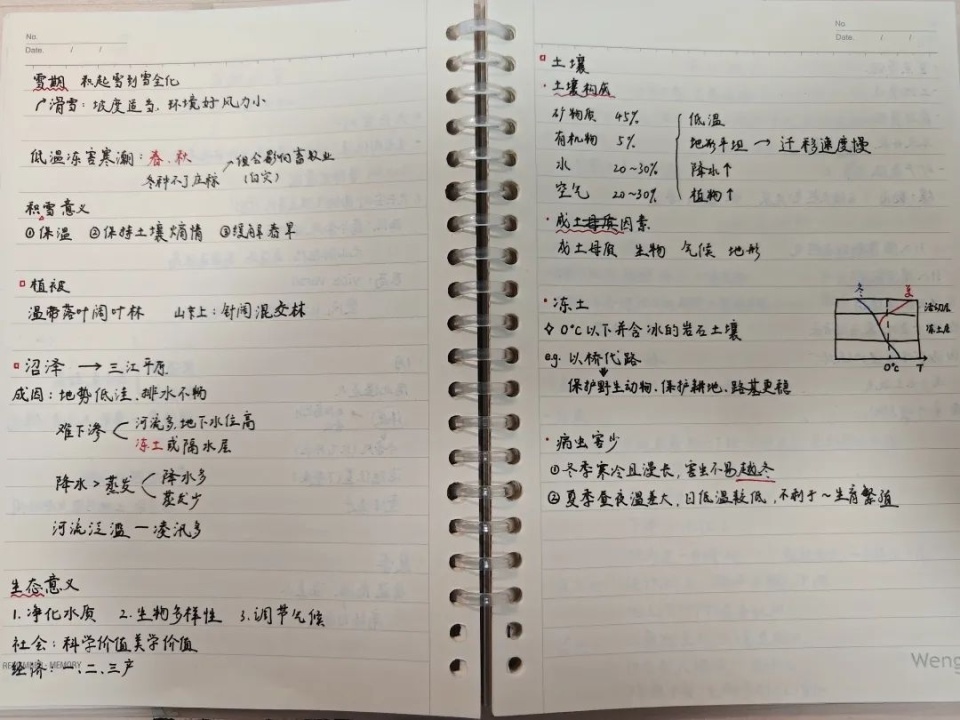 No.
Date. / /
雪期 积起雪到雪全化
滑雪：坡度适当，环境好风力小
低温冻害寒潮：春、秋
冬种不了庄稼 → 组合影响畜牧业
（白灾）
积雪意义
①保温 ②保持土壤熵情 ③缓解春旱
植被
温带落叶阔叶林 山上：针阔混交林
沼泽 → 三江平原
成因：地势低洼、排水不畅
难下渗 河流多，地下水位高
冻土或隔水层
降水 > 蒸发 降水多
蒸发少
河流泛滥 — 凌汛多
生态意义
1. 净化水质 2. 生物多样性 3. 调节气候
社会：科学价值美学价值
经济：一、二、三产
MEMORY
No.
Date. / /
土壤
·土壤构成
矿物质 45% 低温
有机物 5% 地形平坦 → 迁移速度慢
水 20~30% 降水↑
空气 20~30% 植物↑
·成土母质因素
成土母质 生物 气候 地形
·冻土
0℃以下并含冰的岩石土壤
e.g. 以桥代路
保护野生动物、保护耕地、路基更稳
冬 夏
活动层
冻土层
0℃ T
·病虫害少
①冬季寒冷且漫长，害虫不易越冬
②夏季昼夜温差大，日低温较低，不利于~生育繁殖
Weng